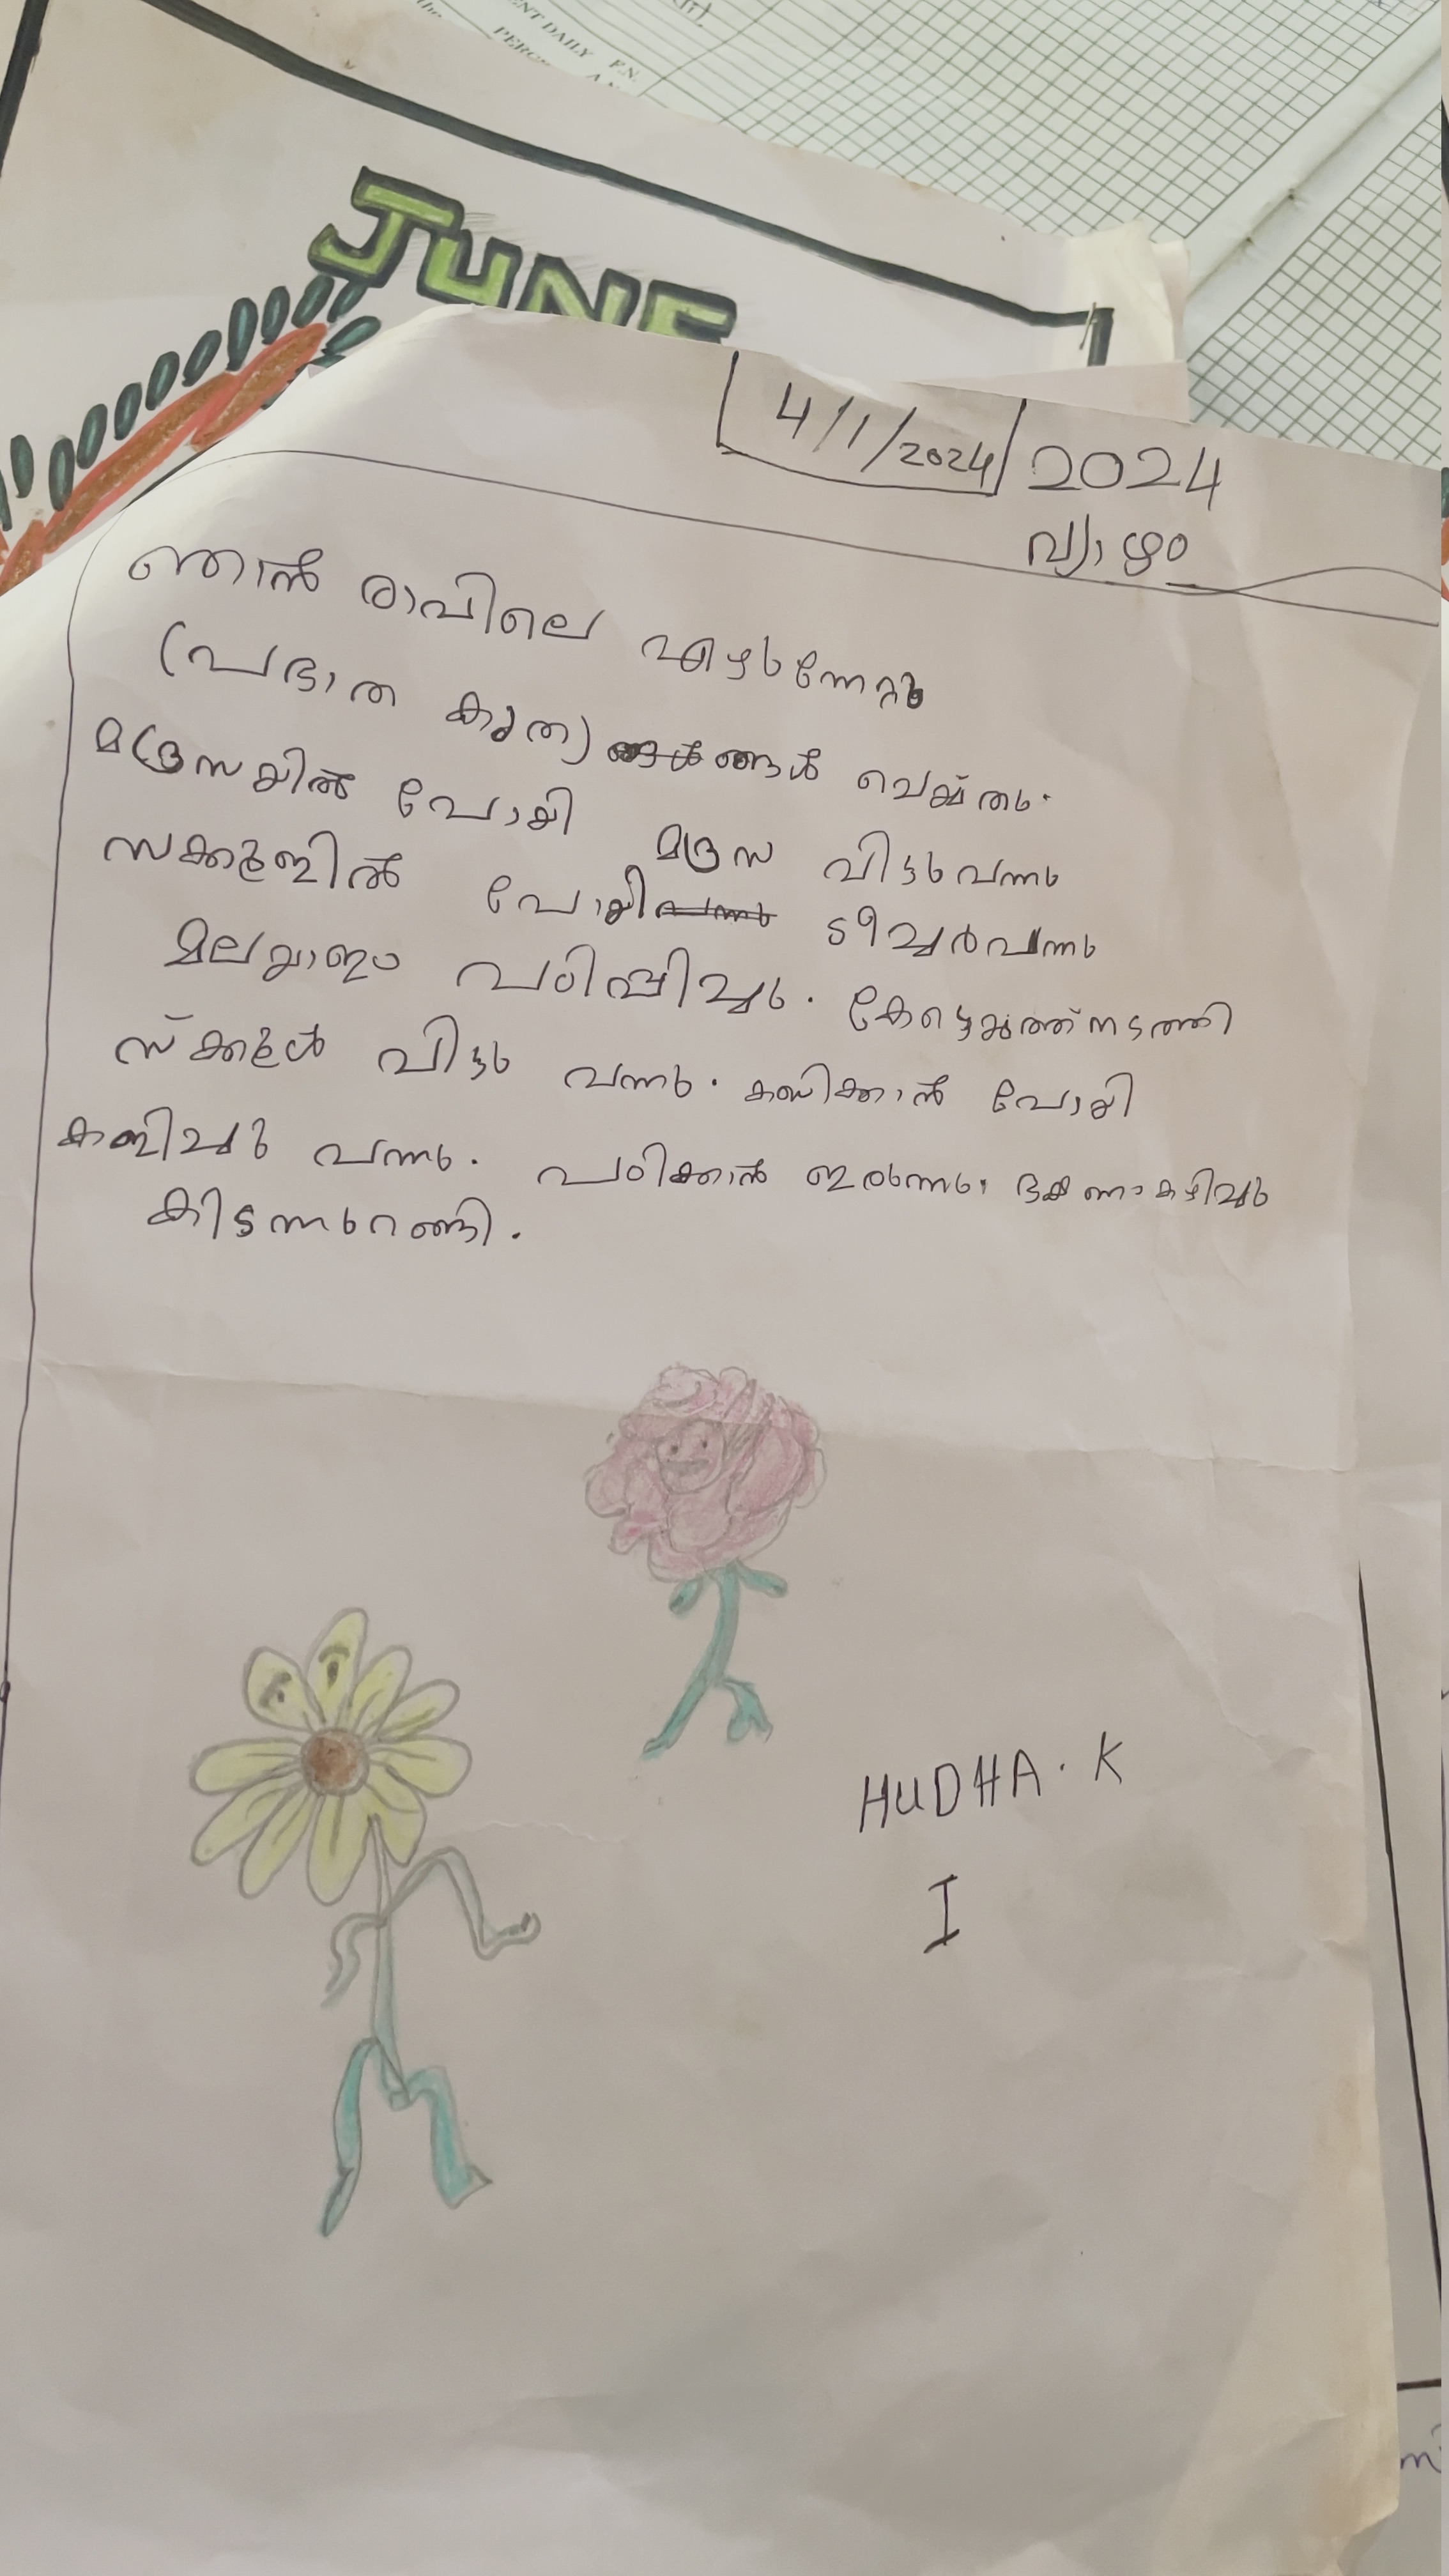 ENT DAILY
P.N.
JUNE
4/1/2024 2024
വ്യാഴം
ഞാൻ രാവിലെ എഴുന്നേറ്റു
പ്രഭാത കൃത്യങ്ങൾ ചെയ്തു.
മദ്രസയിൽ പോയി മദ്രസ വിട്ടുവന്നു
സക്കൂളിൽ പോയി ടീച്ചർവന്നു
മലയാളം പഠിപ്പിച്ചു. കേട്ടെഴുത്ത് നടത്തി
സ്ക്കൂൾ വിട്ടു വന്നു. കളിക്കാൻ പോയി
കളിച്ചു വന്നു. പഠിക്കാൻ ഇരുന്നു. ഭക്ഷണം കഴിച്ചു
കിടന്നുറങ്ങി.
HUDHA. K
I